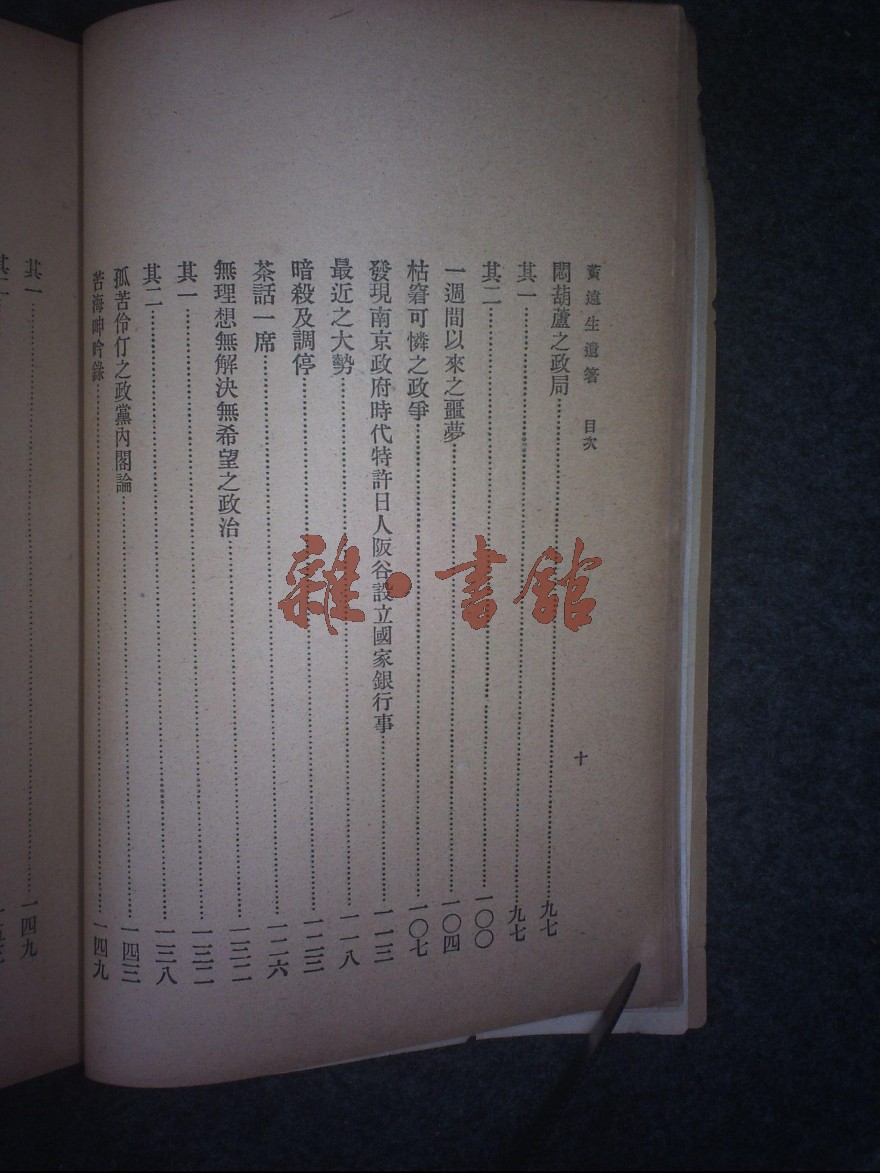 黃遠生遺著 目次 十
悶葫蘆之政局……九七
其一……九七
其二……一〇〇
一週間以來之噩夢……一〇四
枯窘可憐之政爭……一〇七
發現南京政府時代特許日人阪谷設立國家銀行事……一一三
最近之大勢……一一八
暗殺及調停……一二三
茶話一席……一二六
無理想無解決無希望之政治……一三二
其一……一三二
其二……一三八
孤苦伶仃之政黨內閣論……一四三
苦海呻吟錄……一四九
其一……一四九
雜·書館